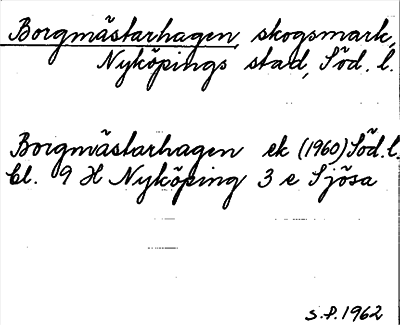 Borgmästarhagen, skogsmark,
Nyköpings stad, Söd. l.
Borgmästarhagen ek (1960) Söd. l.
bl. 9 H Nyköping 3 e Sjösa
S.P. 1962